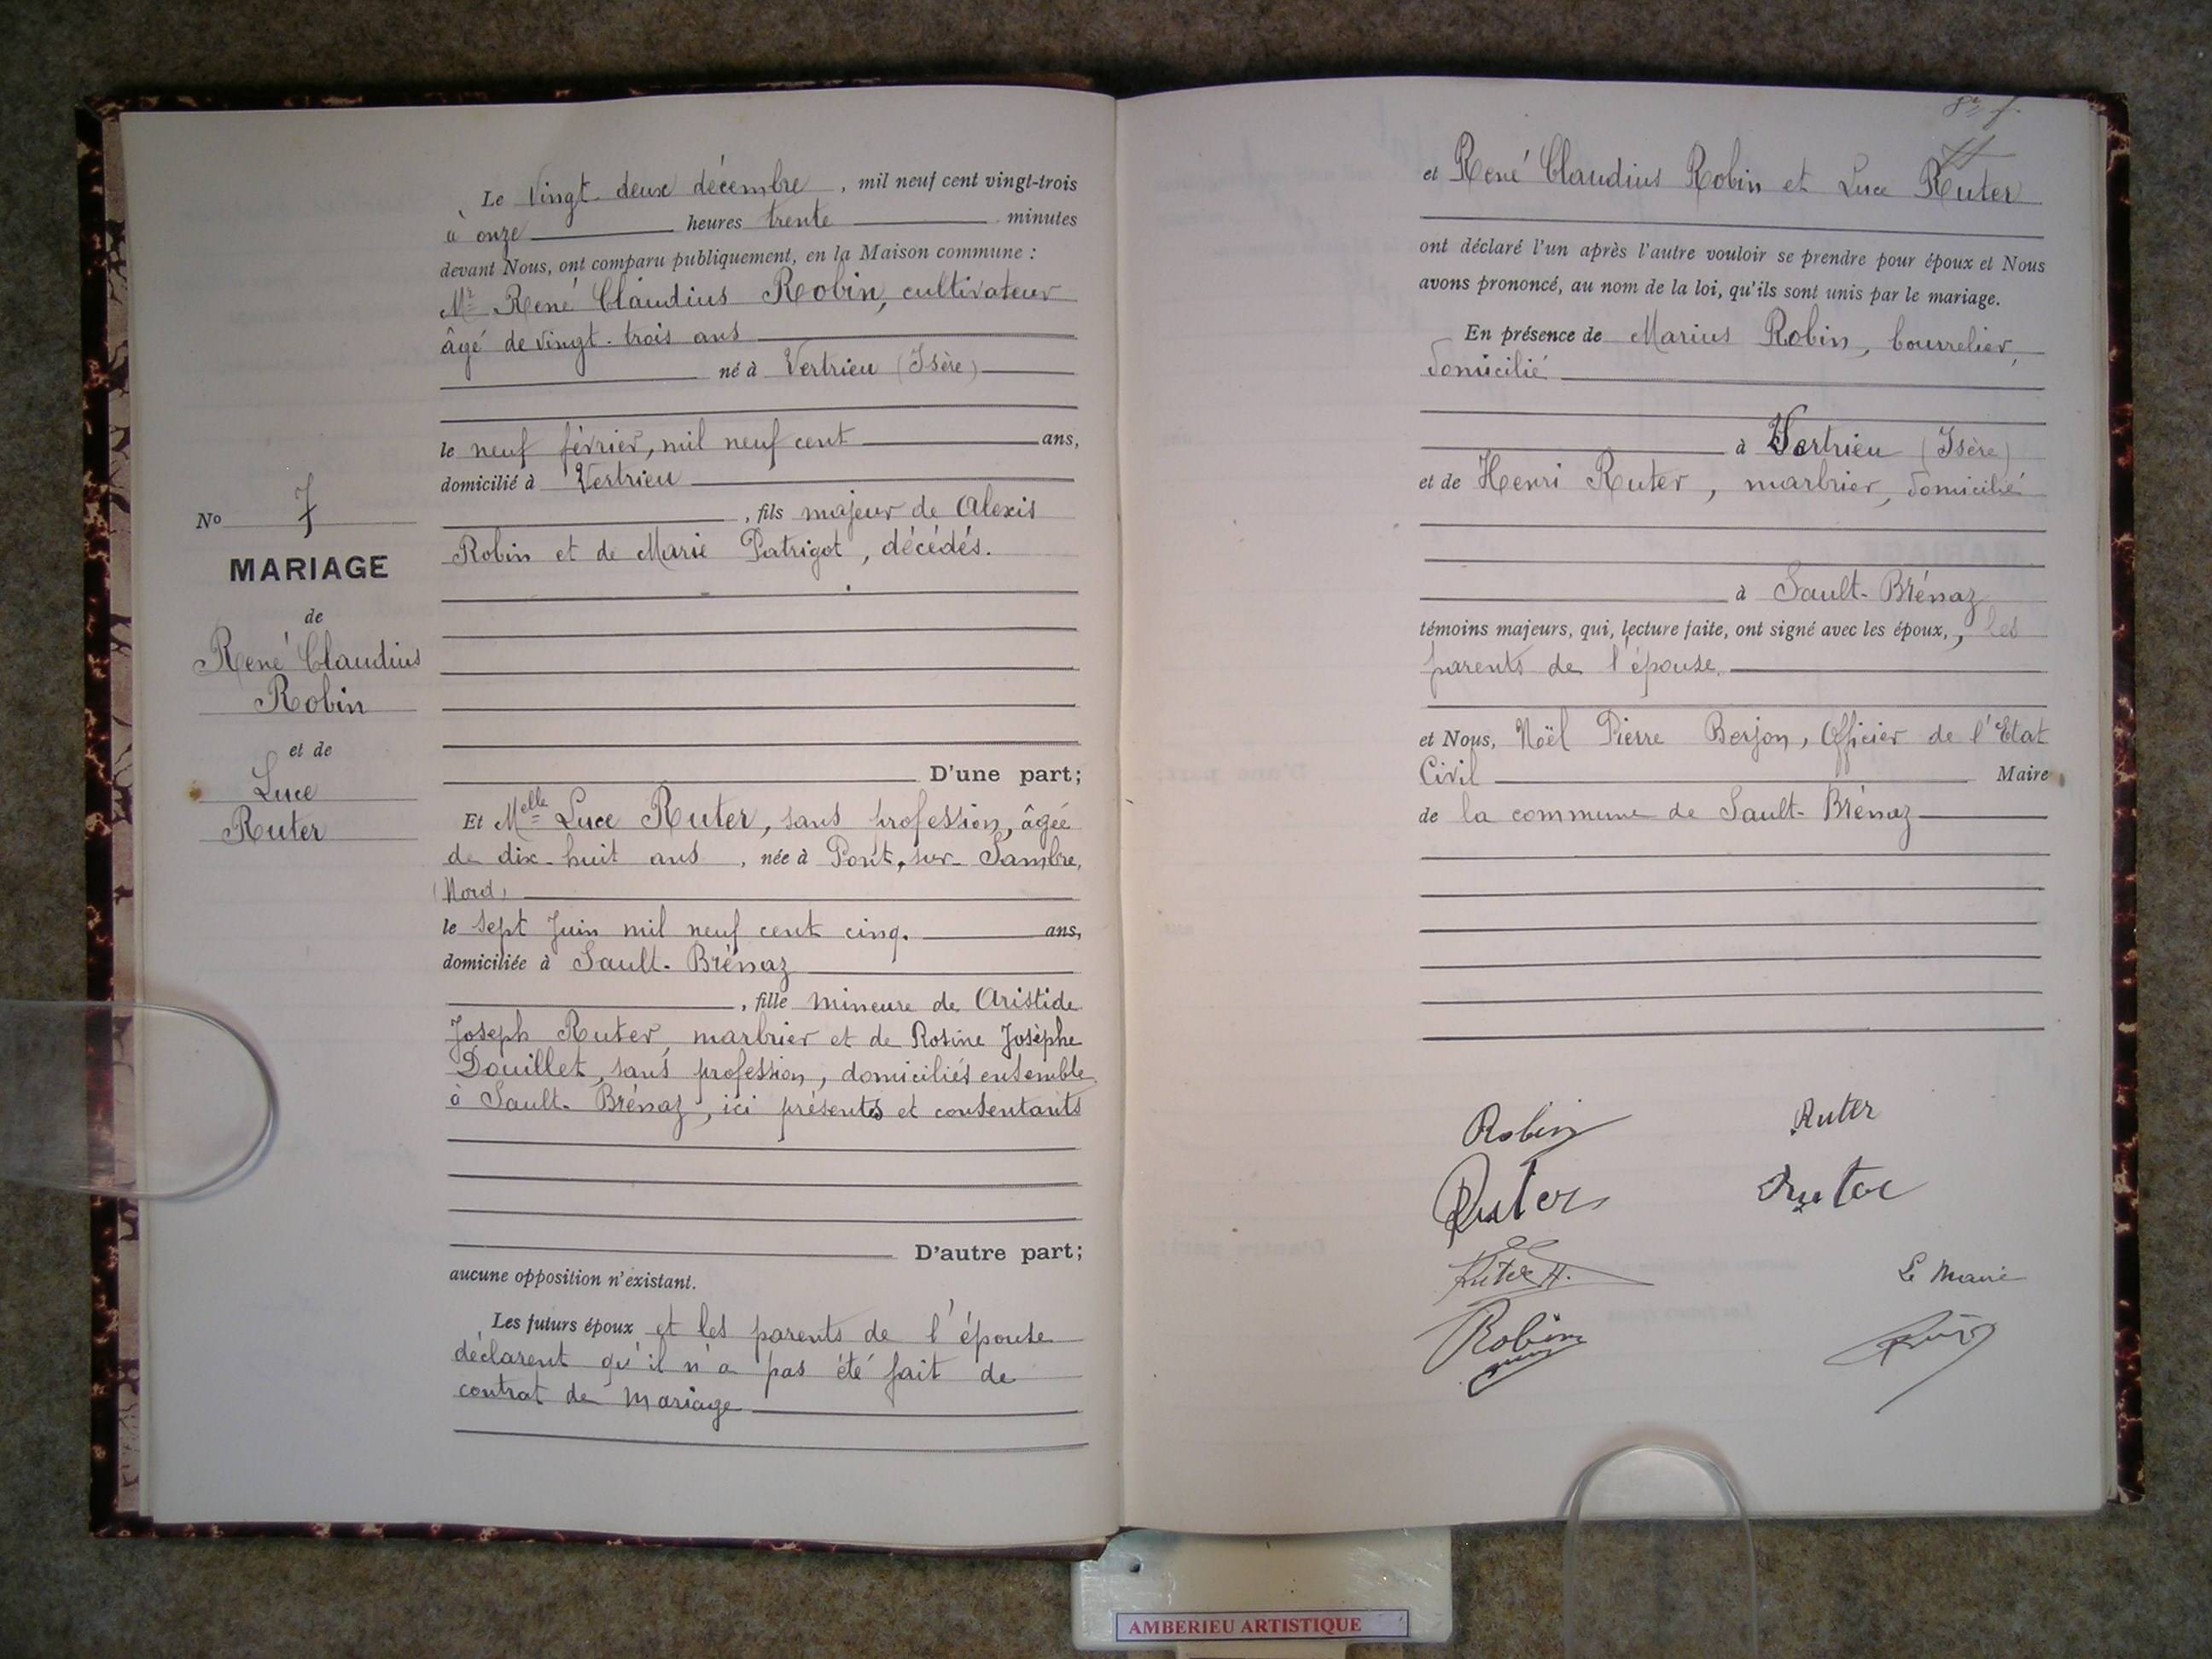 Le Vingt-deux décembre, mil neuf cent vingt-trois
à onze heures trente minutes
devant Nous, ont comparu publiquement, en la Maison commune :
Mr René Claudius Robin, cultivateur
âgé de vingt-trois ans
né à Vertrieu (Isère)
le neuf février, mil neuf cent ans,
domicilié à Vertrieu
, fils majeur de Alexis
Robin et de Marie Patrigot, décédés.
D'une part;
Et Melle Luce Ruter, sans profession, âgée
de dix-huit ans, née à Pont-sur-Sambre,
(Nord)
le sept Juin mil neuf cent cinq. ans,
domiciliée à Sault-Brénaz
, fille mineure de Aristide
Joseph Ruter, marbrier et de Rosine Josèphe
Douillet, sans profession, domiciliés ensemble
à Sault-Brénaz, ici présents et consentants
D'autre part;
aucune opposition n'existant.
Les futurs époux et les parents de l'épouse
déclarent qu'il n'a pas été fait de
contrat de mariage
No 7
MARIAGE
de
René Claudius
Robin
et de
Luce
Ruter
et René Claudius Robin et Luce Ruter
ont déclaré l'un après l'autre vouloir se prendre pour époux et Nous
avons prononcé, au nom de la loi, qu'ils sont unis par le mariage.
En présence de Marius Robin, bourrelier,
domicilié
à Vertrieu (Isère)
et de Henri Ruter, marbrier, domicilié
à Sault-Brénaz
témoins majeurs, qui, lecture faite, ont signé avec les époux, , les
parents de l'épouse.
et Nous, Noël Pierre Berjon, Officier de l'Etat
Civil Maire
de la commune de Sault-Brénaz
Robin Ruter
Ruter Ruter
Ruter H. Le Maire
Robin
AMBERIEU ARTISTIQUE